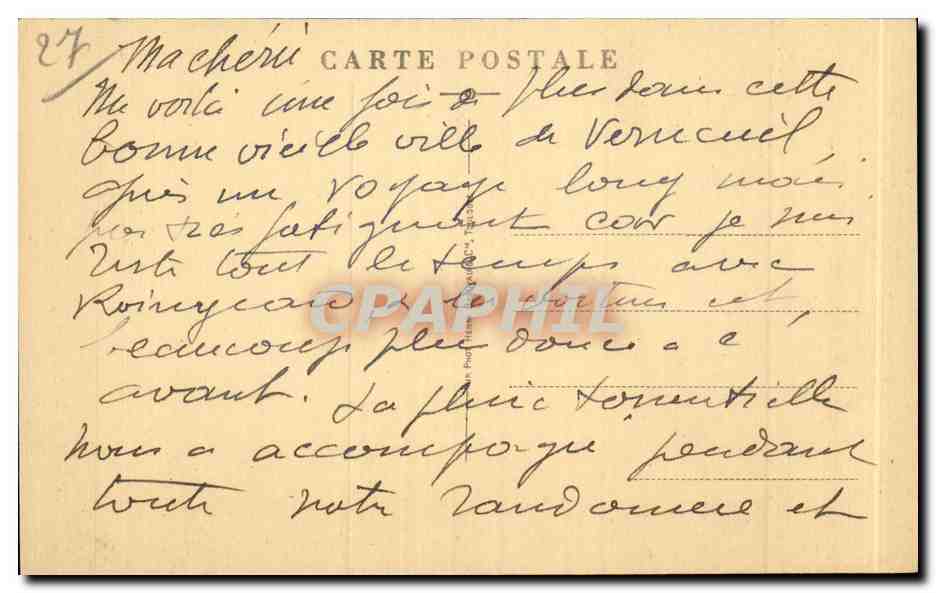 27
Ma chérie CARTE POSTALE
Me voilà une fois de plus dans cette
bonne vieille ville de Verneuil
après un voyage long mais
pas très fatigant car je suis
resté tout le temps avec
et
beaucoup plus douce à l'
avant. La pluie torrentielle
nous a accompagné pendant
toute notre randonnée et
CPAPHIL